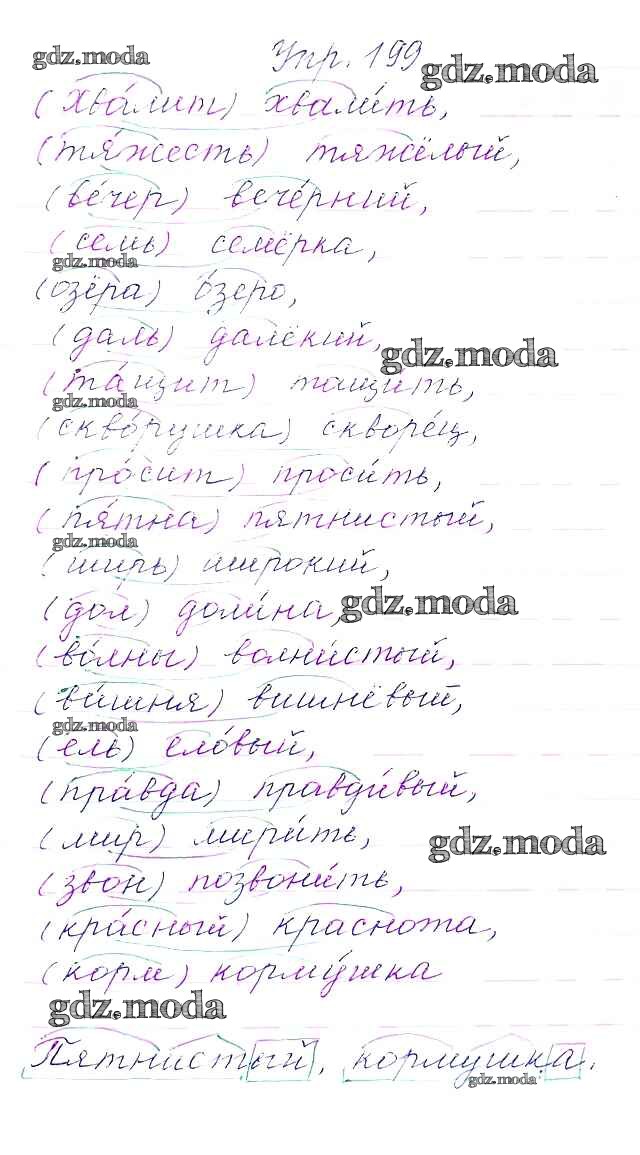 gdz.moda
Упр. 199
gdz.moda
(хва́лит) хвали́ть,
(тя́жесть) тяжёлый,
(ве́чер) вече́рний,
(семь) семёрка,
gdz.moda
(озёра) о́зеро,
(даль) далёкий,
gdz.moda
(та́щит) тащи́ть,
gdz.moda
(скво́рушка) скворе́ц,
(про́сит) проси́ть,
(пя́тна) пятнистый,
gdz.moda
(ширь) широкий,
(дол) доли́на,
gdz.moda
(во́лны) волни́стый,
(ви́шня) вишнёвый,
gdz.moda
(ель) ело́вый,
(пра́вда) правди́вый,
(мир) мири́ть,
gdz.moda
(звон) позвони́ть,
(кра́сный) краснота,
(корм) корму́шка
gdz.moda
Пятнистый, кормушка.
gdz.moda